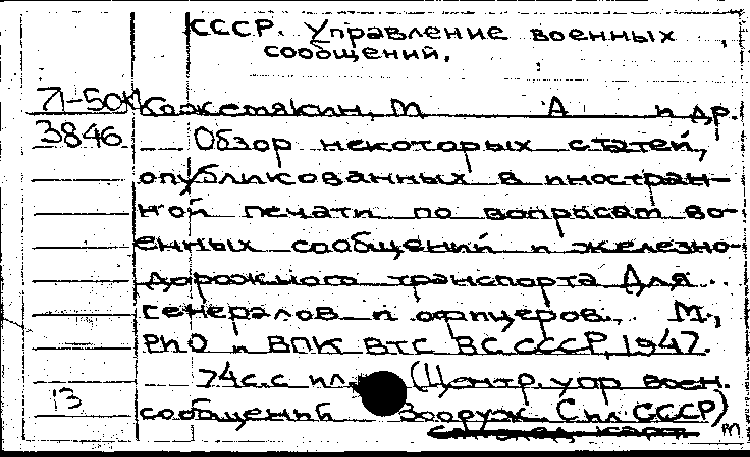 СССР. Управление военных
сообщений.
Л-50К Кожемякин, М А и др.
3846 Обзор некоторых статей,
опубликованных в иностран-
ной печати по вопросам во-
енных сообщений и железно-
дорожного транспорта Для
генералов и офицеров. М.,
РИО и ВПК ВТС ВС СССР, 1947.
74с.с ил. (Центр. упр воен.
13 сообщений Вооруж. Сил СССР)
т